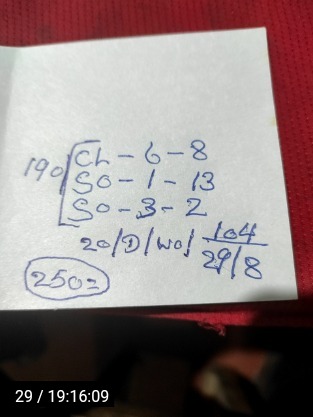 190 [ Ch - 6 - 8
So - 1 - 13
So - 3 - 2
20/D/wo/ 104
29/8
250=
29 / 19:16:09